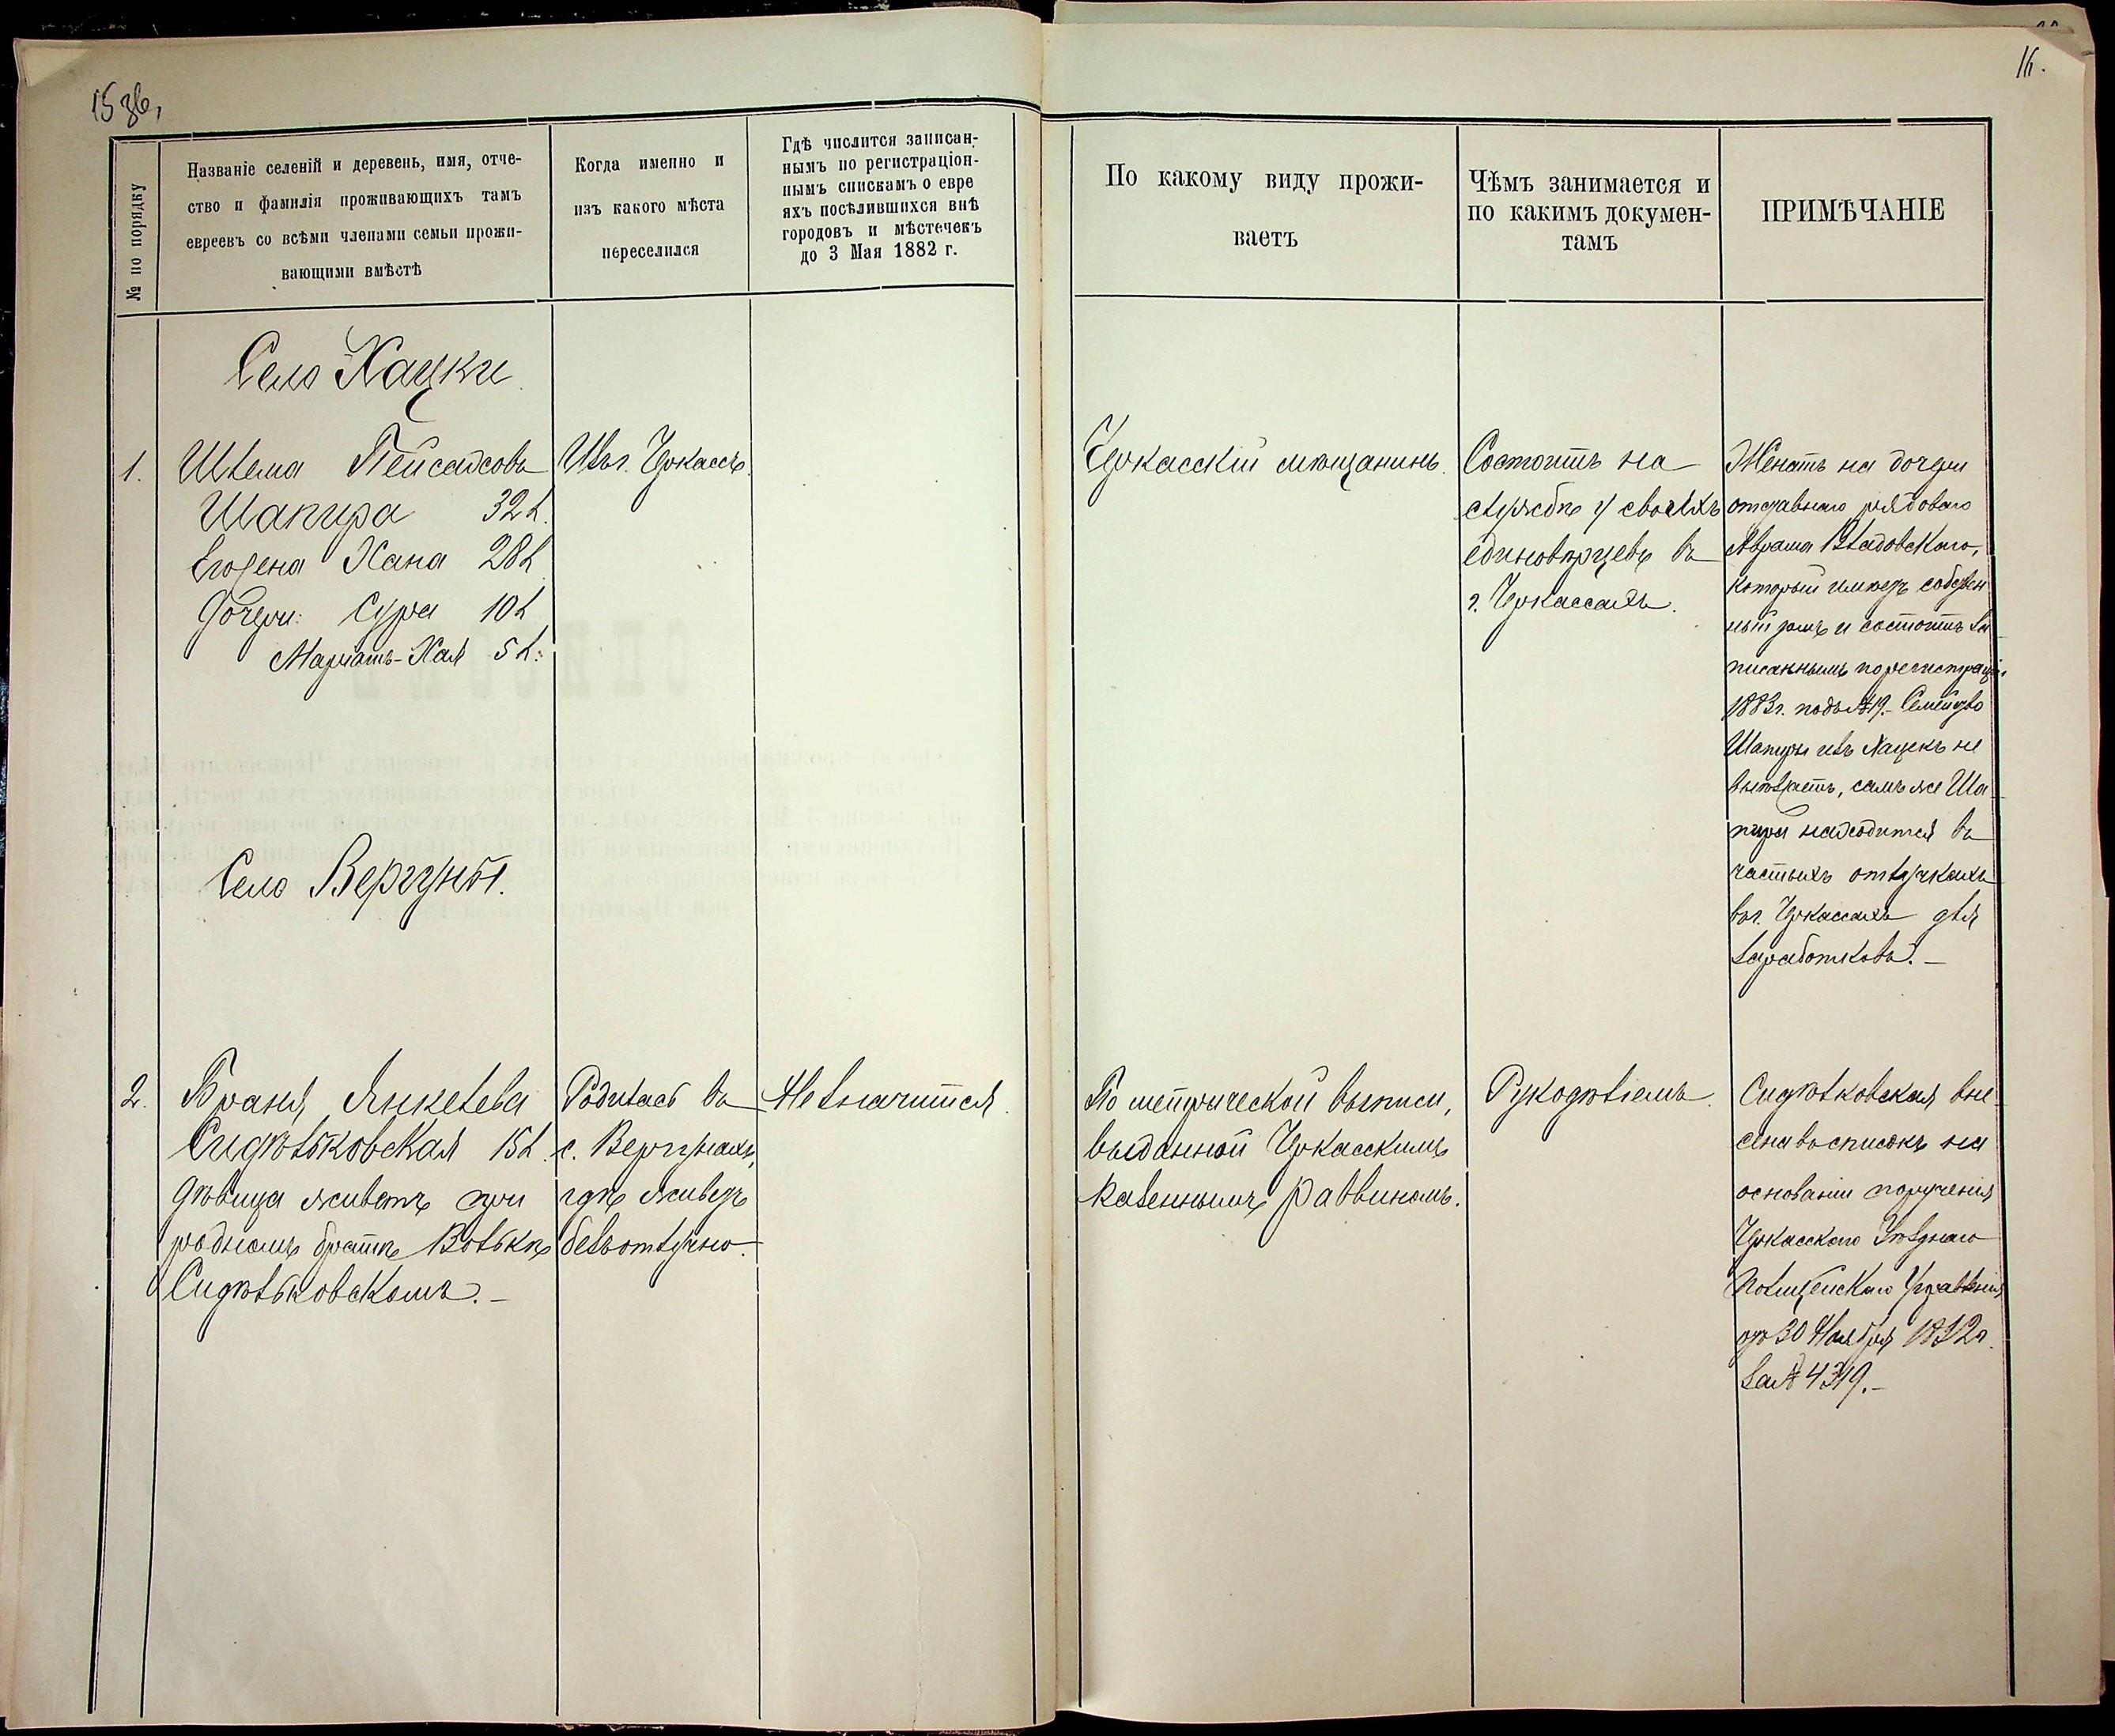 15 зв,
16.
№ по порядку
Названіе селеній и деревень, имя, отче-
ство и фамилія проживающихъ тамъ
евреевъ со всѣми членами семьи прожи-
вающими вмѣстѣ
Когда именно и
изъ какого мѣста
переселился
Гдѣ числится записан-
нымъ по регистраціон-
нымъ спискамъ о евре
яхъ посѣлившихся внѣ
городовъ и мѣстечекъ
до 3 Мая 1882 г.
По какому виду прожи-
ваетъ
Чѣмъ занимается и
по какимъ докумен-
тамъ
ПРИМѢЧАНІЕ
Село Хацки
1.
Шлема Пейсаховъ
Шапира 32 л.
Его жена Хана 28 л
Дочери: Сура 10 л
Маріамъ-Хая 5 л:
Изъ г. Черкассъ.
Черкасскій мѣщанинъ.
Состоитъ на
службѣ у своихъ
единовѣрцевъ въ
г. Черкассахъ.
Женатъ на дочери
отставнаго рядоваго
Аврама
который имѣетъ собствен
ный домъ и состоитъ за
писаннымъ по регистраціи
1883 г. подъ № 19.- Семейство
Шапиры изъ Хацекъ не
выѣзжаетъ, самъ же Ша-
пира находится въ
частыхъ отлучкахъ
въ г. Черкассахъ для
заработковъ.-
Село Вергуны.
2.
Браня Янкелева
Сидѣльковская 15 л.
дѣвица живетъ при
родномъ братѣ Волькѣ
Сидѣльковскомъ.-
Родилась въ
с. Вергунахъ,
гдѣ живетъ
безъотлучно.
Не значится.
По метрической выписи,
выданной Черкасскимъ
казеннымъ раввиномъ.
Рукодѣліемъ.
Сидѣлковская вне-
сена въ списокъ на
основаніи порученія
Черкасскаго Уѣзднаго
Полицейскаго Управленія
отъ 30 Ноября г.
за № 4319.-